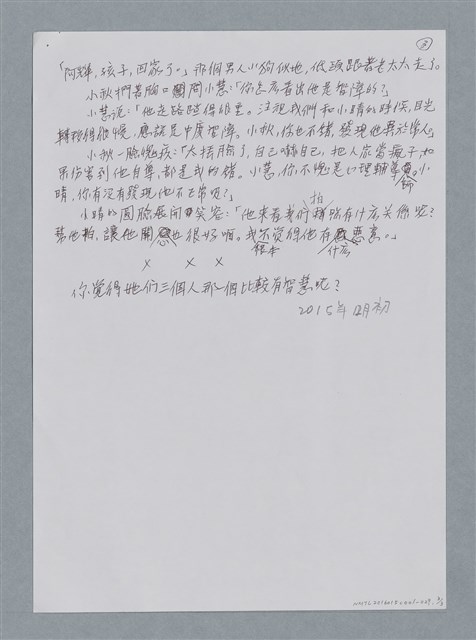 ③
「阿輝，孩子，回家了。」那個男人小狗似地，低頭跟著老太太走了。
小秋捫著胸口問小慧：「你怎麼看出他是智障的？」
小慧說：「他走路踏得很重。注視我們和小晴的時候，目光
轉移得很慢，應該是中度智障。小秋，你也不錯，發現他異於常人」
小秋一臉愧疚：「太搞笑了，自己嚇自己，把人家當瘋子，如
果傷害到他自尊，都是我的錯。小慧，你不愧是心理輔導員。小
晴，你有沒有發現他不正常呢？」
小晴的圓臉展開笑容：「他來看我們拍照有什麼關係呢？
幫他拍，讓他開心也很好啊。我根本不覺得他有什麼惡意。」
× × ×
你覺得她们三個人那一個比較有智慧呢？
2015年12月初